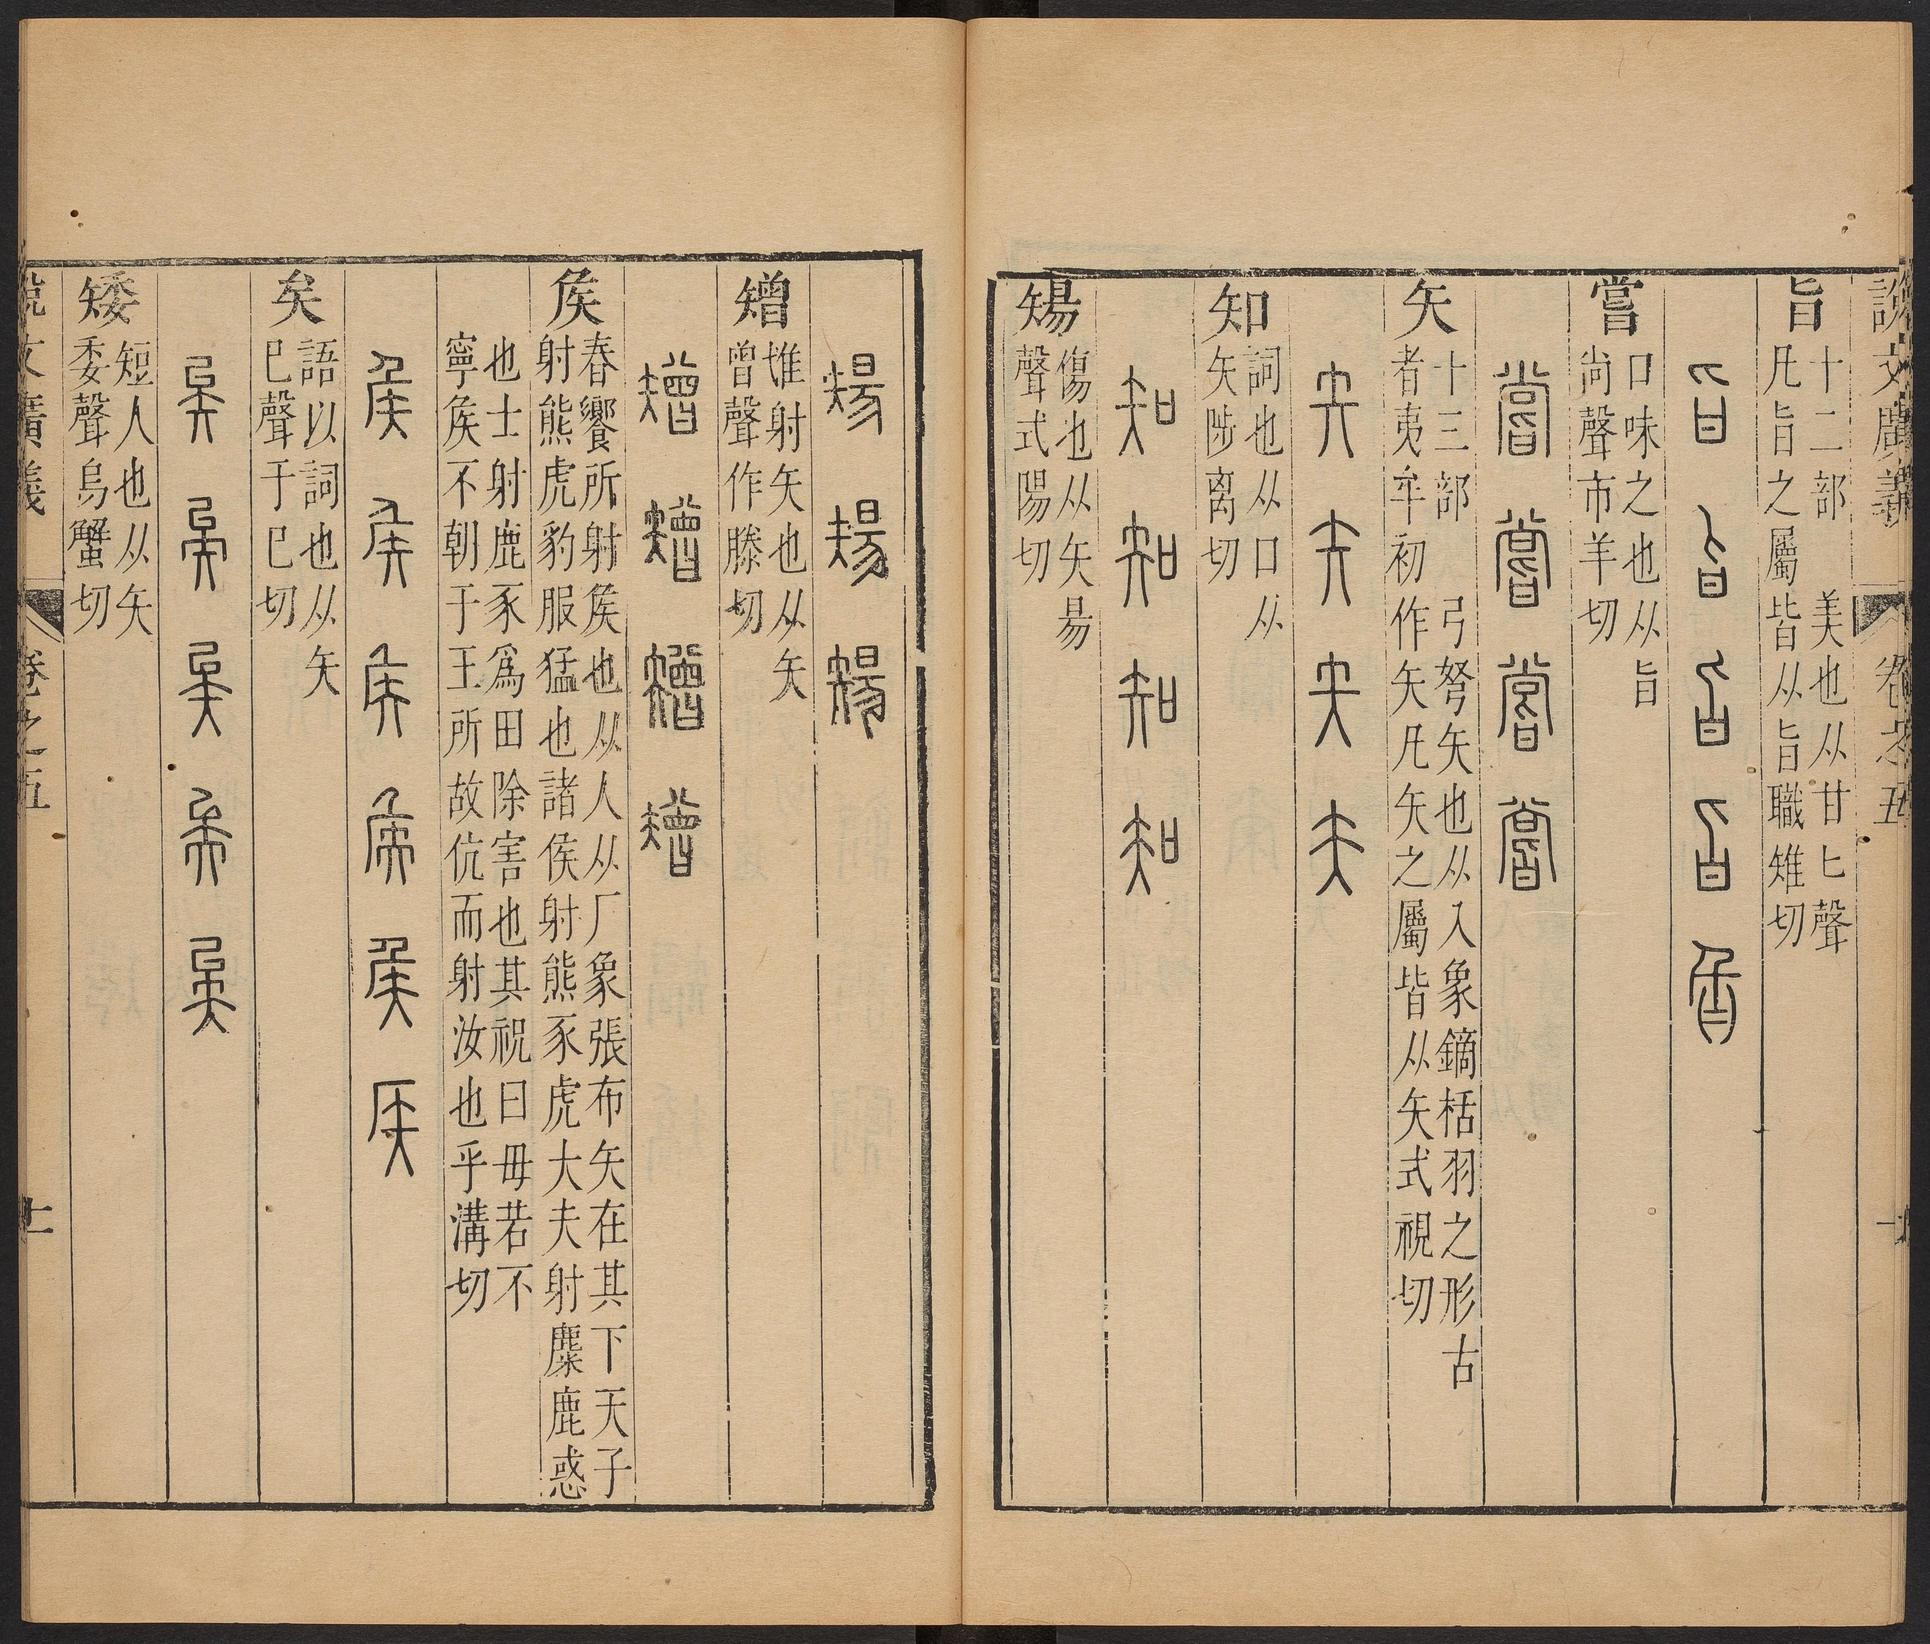 說文廣義 卷之五
旨 十二部 美也从甘匕聲
凡旨之屬皆从旨職雉切
嘗 口味之也从旨
尚聲市羊切
矢 十三部 弓弩矢也从入象鏑栝羽之形古
者夷牟初作矢凡矢之屬皆从矢式視切
知 詞也从口从
矢陟离切
𥏫 傷也从矢昜
聲式陽切
矰 惟射矢也从矢
曾聲作滕切
矦 春饗所射矦也从人从厂象張布矢在其下天子
射熊虎豹服猛也諸侯射熊豕虎大夫射麋鹿惑
也士射鹿豕爲田除害也其祝曰毋若不
寧矦不朝于王所故伉而射汝也乎溝切
矣 語以詞也从矢
巳聲于巳切
矮 短人也从矢
委聲烏蟹切
說文廣義 卷之五 十一